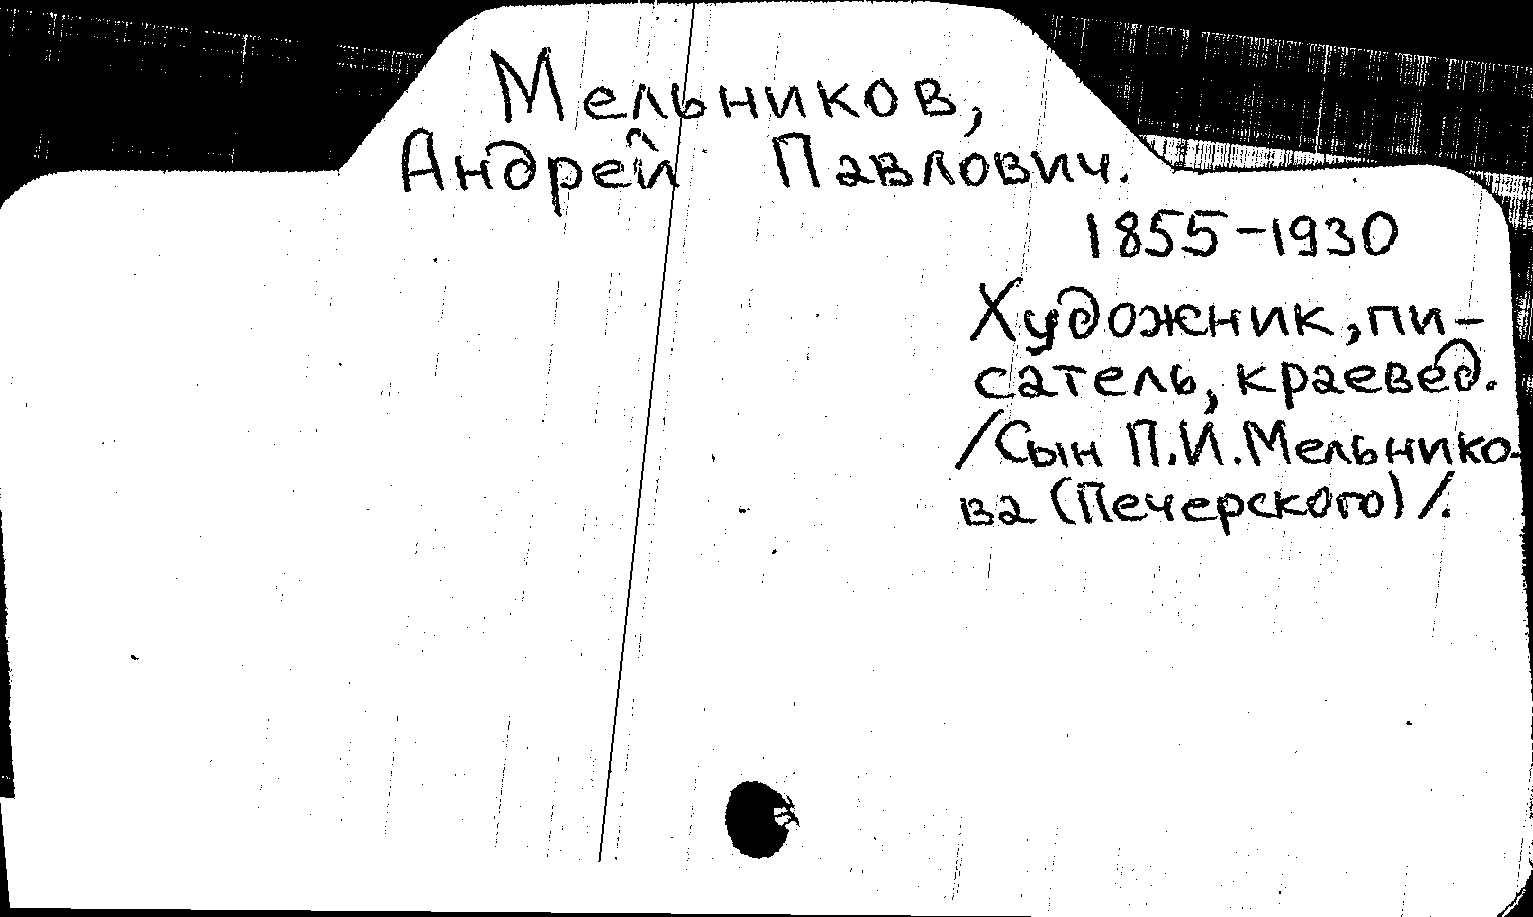 Мельников,
Андрей Павлович.
1855-1930
Художник, пи-
сатель, краевед.
/Сын П.И.Мельнико-
ва (Печерского)/.